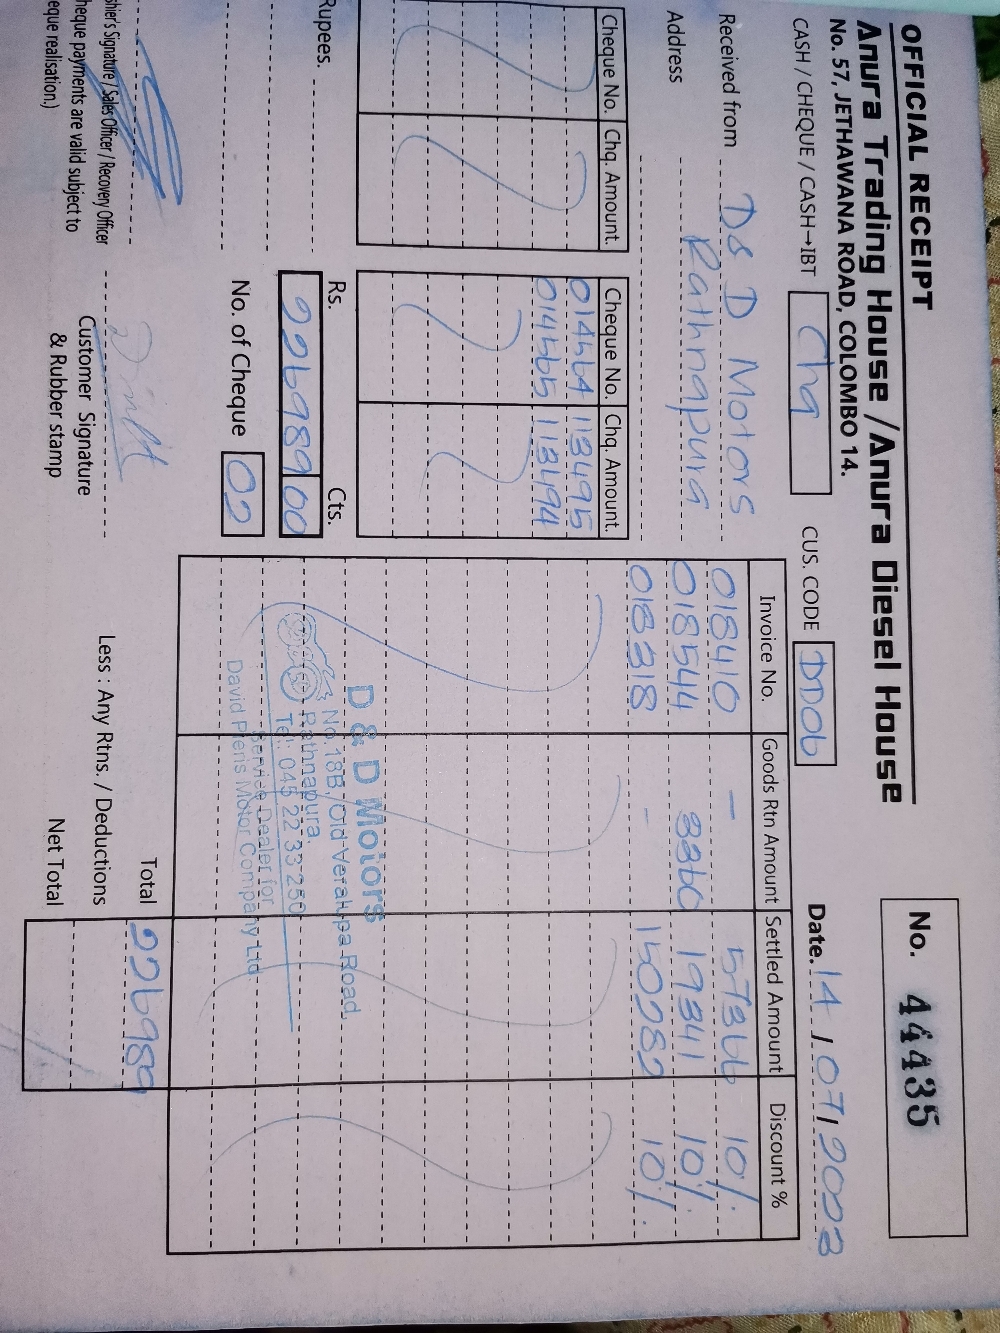 OFFICIAL RECEIPT
Anura Trading House / Anura Diesel House
No. 57, JETHAWANA ROAD, COLOMBO 14.
No. 44435
CASH / CHEQUE / CASH→IBT Chq
CUS. CODE DD06
Date. 14 / 07 / 2023
Received from D & D Motors
Address Rathnapura
Cheque No. Chq. Amount. Cheque No. Chq. Amount.
014564 113495
014565 113494
Invoice No. Goods Rtn Amount Settled Amount Discount %
018410 - 57366 10%
018544 3360 19341 10%
018318 - 150282 10%
Rupees.
Rs. Cts.
226989 00
No. of Cheque 02
D & D Motors
No.18B, Old Veralupa Road,
Rathnapura.
Tel: 045 22 33 250
Service Dealer for
David Pieris Motor Company Ltd.
Total 226989
Less : Any Rtns. / Deductions
Net Total
shier's Signature / Sales Officer / Recovery Officer
heque payments are valid subject to
eque realisation.)
Customer Signature
& Rubber stamp